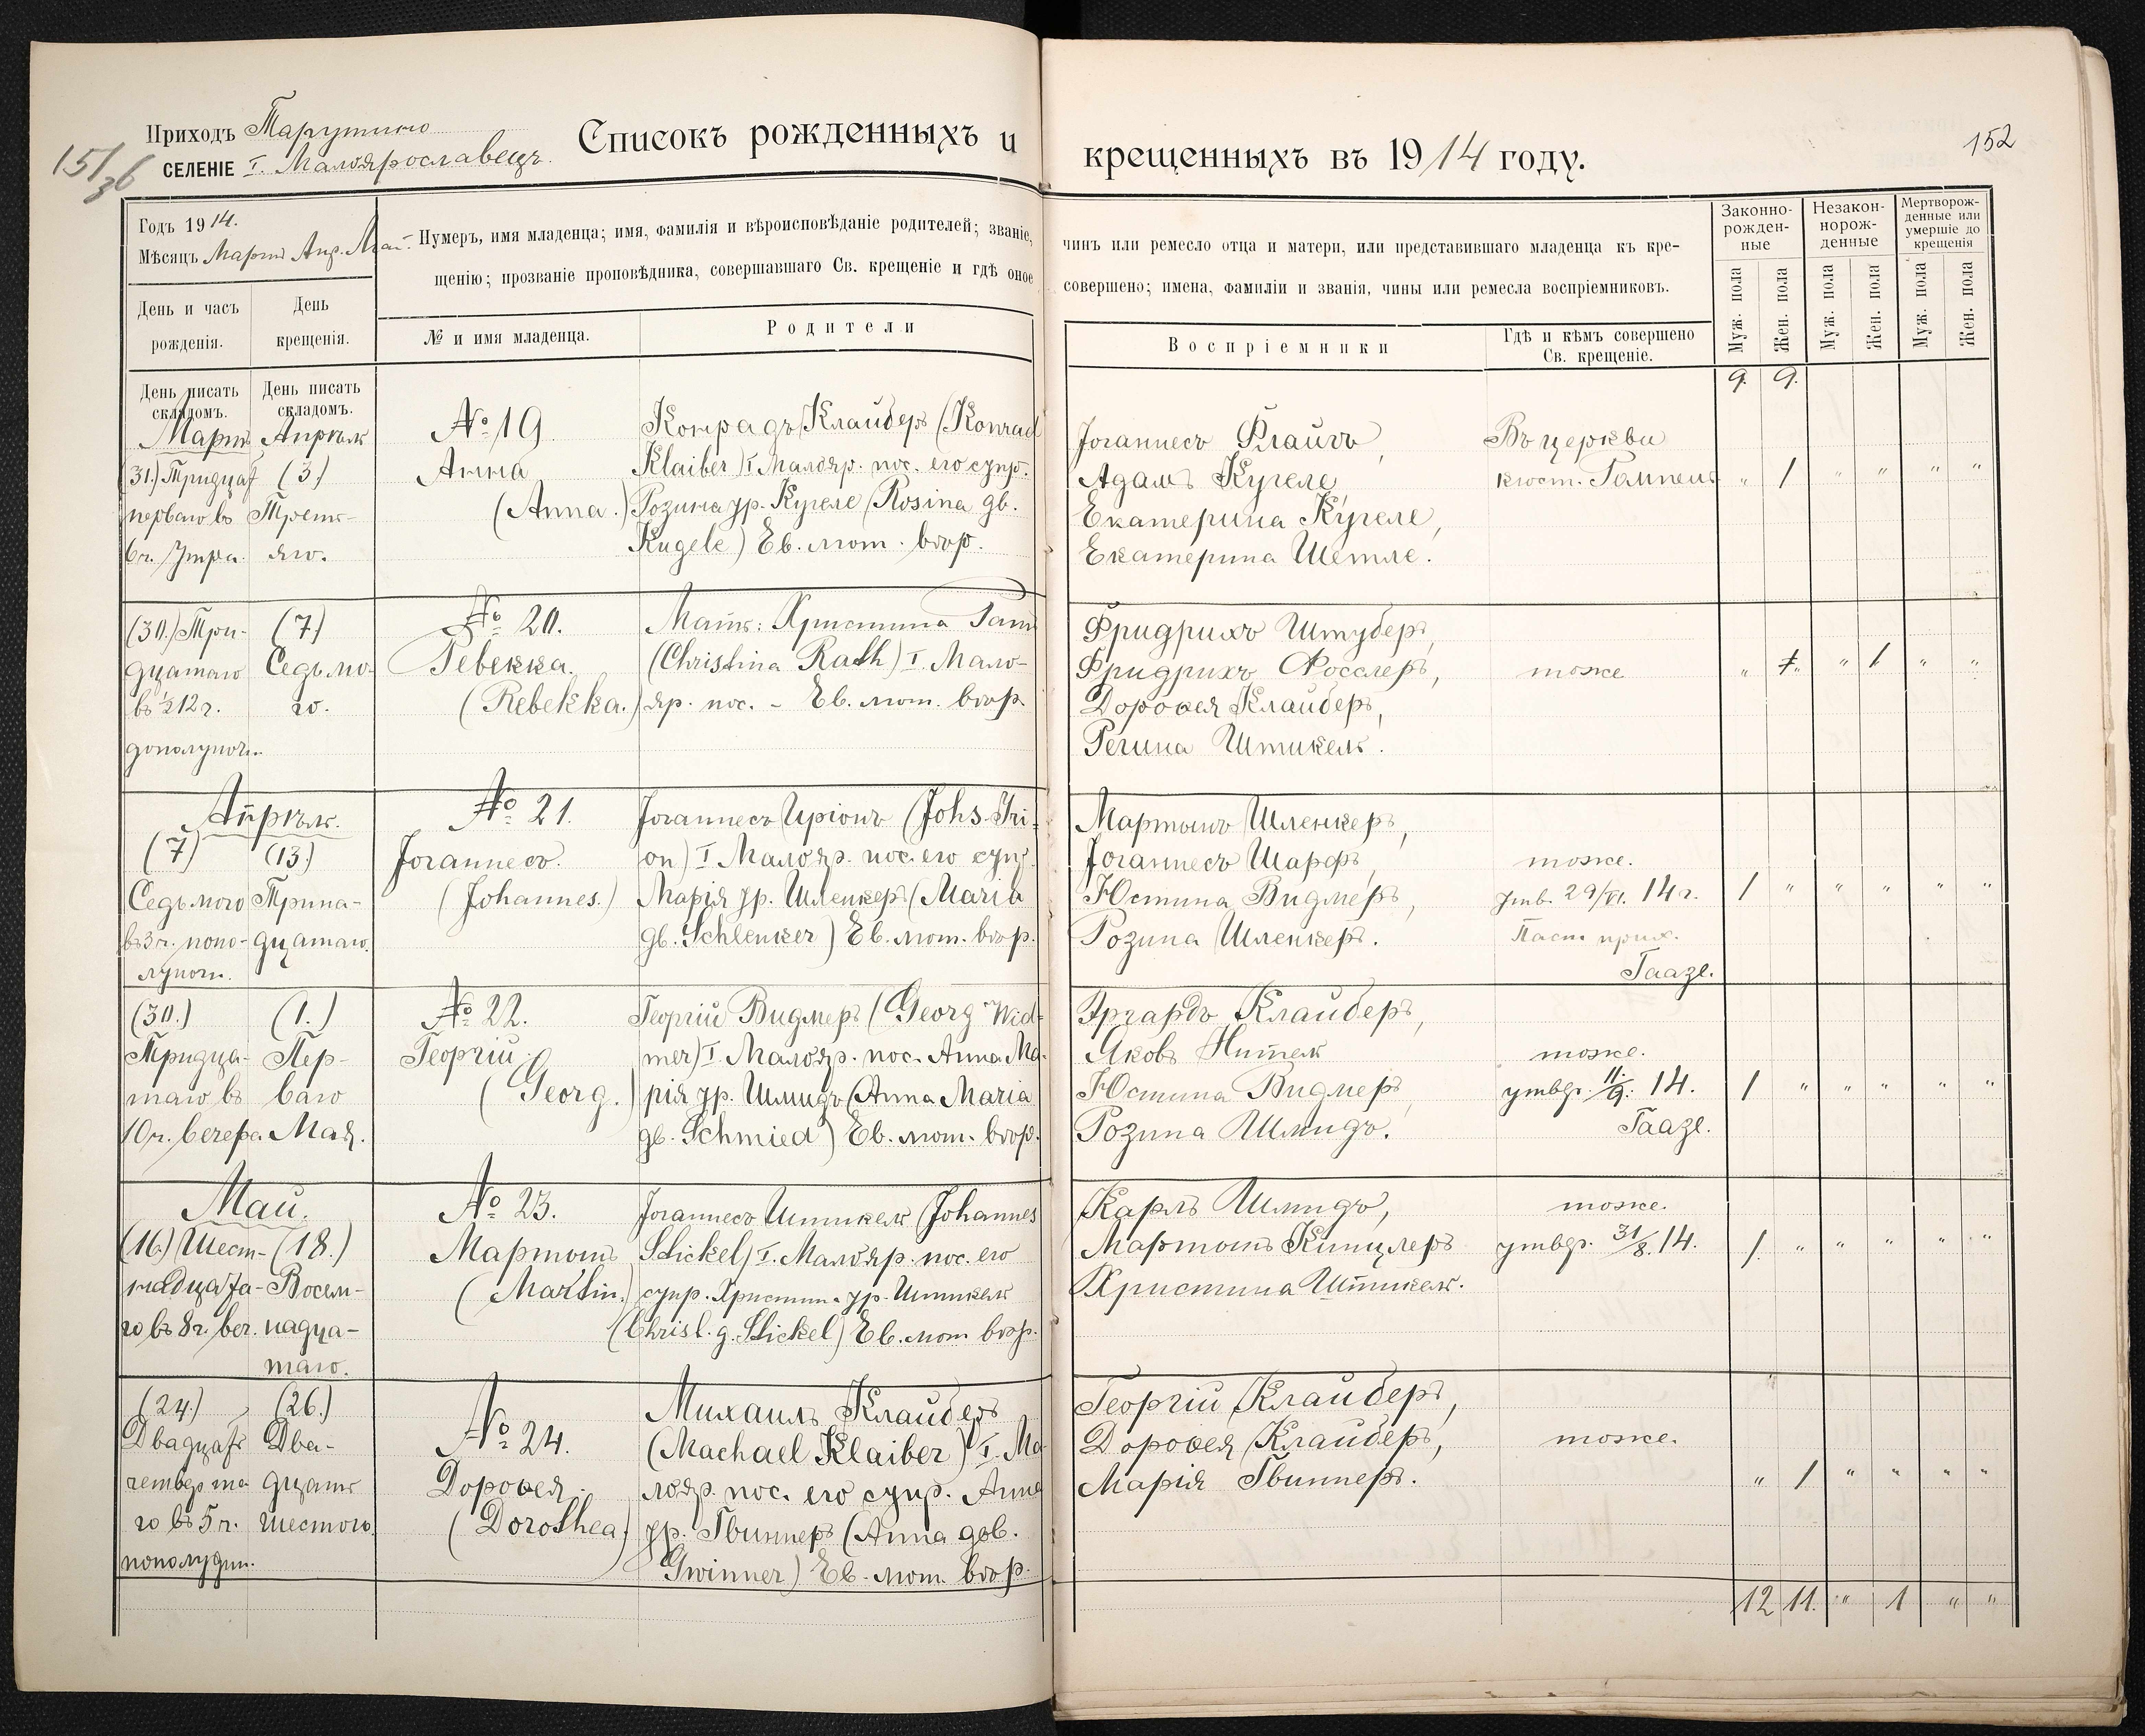 Приходъ Тарутино
СЕЛЕНІЕ I. Малоярославецъ.
151/36
Списокъ рожденныхъ и крещенныхъ въ 1914 году.
152
Годъ 1914.
Мѣсяцъ Мартъ Апр. Май.
День и часъ рожденія.
День крещенія.
Нумеръ, имя младенца; имя, фамилія и вѣроисповѣданіе родителей; званіе, чинъ или ремесло отца и матери, или представившаго младенца къ кре-
щенію; прозваніе проповѣдника, совершавшаго Св. крещеніе и гдѣ оное совершено; имена, фамиліи и званія, чины или ремесла воспріемниковъ.
№ и имя младенца.
Родители
Воспріемники
Гдѣ и кѣмъ совершено Св. крещеніе.
Законно-рожден-ные
Незакон-норож-денные
Мертворож-денные или умершіе до крещенія
Муж. пола
Жен. пола
Муж. пола
Жен. пола
Муж. пола
Жен. пола
День писать складомъ.
День писать складомъ.
9. 9.
Мартъ
(31.) Тридцат
перваго въ
6 ч. Утра.
Апрѣль
(3.)
Треть-
яго.
№ 19
Анна
(Anna.)
Конрадъ Клайберъ (Konrad
Klaiber) I. Малояр. пос. его супр.
Розина ур. Кугеле (Rosina gb.
Kugele) Ев. лют. вѣор.
Іоганнесъ Флайгъ,
Адамъ Кугеле
Екатерина Кугеле,
Екатерина Шетле.
Въ церкви
кюст.
" 1 " " " "
(30.) Три-
дцатаго
въ ½12 ч.
дополуночи.
(7.)
Седьмо-
го.
№ 20.
Ревекка.
(Rebekka.)
Мать: Христина Ратъ
(Christina Rath) I. Мало-
яр. пос. - Ев. лют. вѣор.
Фридрихъ Штуберъ,
Фридрихъ Росслеръ,
Доровея Клайберъ,
Регина Штикель.
тоже
" 1. " 1 " "
Апрѣль.
(7)
Седьмого
въ 3 ч. попо-
луночи.
(13.)
Трина-
дцатаго.
№ 21.
Іоганнесъ.
(Johannes.)
Іоганнесъ Иріонъ (Johs. Iri-
on) I Малояр. пос. его супр.
Марія ур. Шленкеръ (Maria
gb. Schlenker) Ев. лют. вѣор.
Мартынъ Шленкеръ,
Іоганнесъ Шарфъ,
Юстина Видмеръ,
Розина Шленкеръ.
тоже.
утв. 29/VI. 14 г.
Паст. прих.
Гаазе.
1 " " " " "
(30.)
Тридца-
таго въ
10 ч. вечера.
(1.)
Пер-
ваго
Мая.
№ 22.
Георгій
(Georg.)
Георгій Видмеръ (Georg Wid-
mer) I. Малояр. пос. Анна Ма-
рія ур. Шмидъ (Anna Maria
gb. Schmied) Ев. лют. вѣор.
Эргардъ Клайберъ,
Яковъ Нитель
Юстина Видмеръ,
Розина Шмидъ.
тоже.
утвдр. 11./9. 14.
Гаазе.
1 " " " " "
Май.
(16.) Шест-
надцата-
го въ 8 ч. веч.
(18.)
Восем-
надца-
таго.
№ 23.
Мартынъ
(Martin.)
Іоганнесъ Штикель (Johannes
Stickel) I. Малояр. пос. его
супр. Христина ур. Штикель
(Christ. g. Stickel) Ев. лют. вѣор.
Карлъ Шмидъ,
Мартынъ Кинцлеръ
Христина Штикель.
тоже.
утвдр. 31/8. 14.
1. " " " " "
(24.)
Двадцать
четверта
го въ 5 ч.
пополудни.
(26.)
Два-
дцать
шестого.
№ 24.
Доровея.
(Dorothea.)
Михаилъ Клайберъ
(Machael Klaiber) I. Ма-
лояр. пос. его супр. Анна
ур. Гвиннеръ (Anna geb.
Gwinner) Ев. лют. вѣор.
Георгій Клайберъ,
Доровея Клайберъ,
Марія Гвиннеръ.
тоже.
" 1 " " " "
12 11. " 1 " "